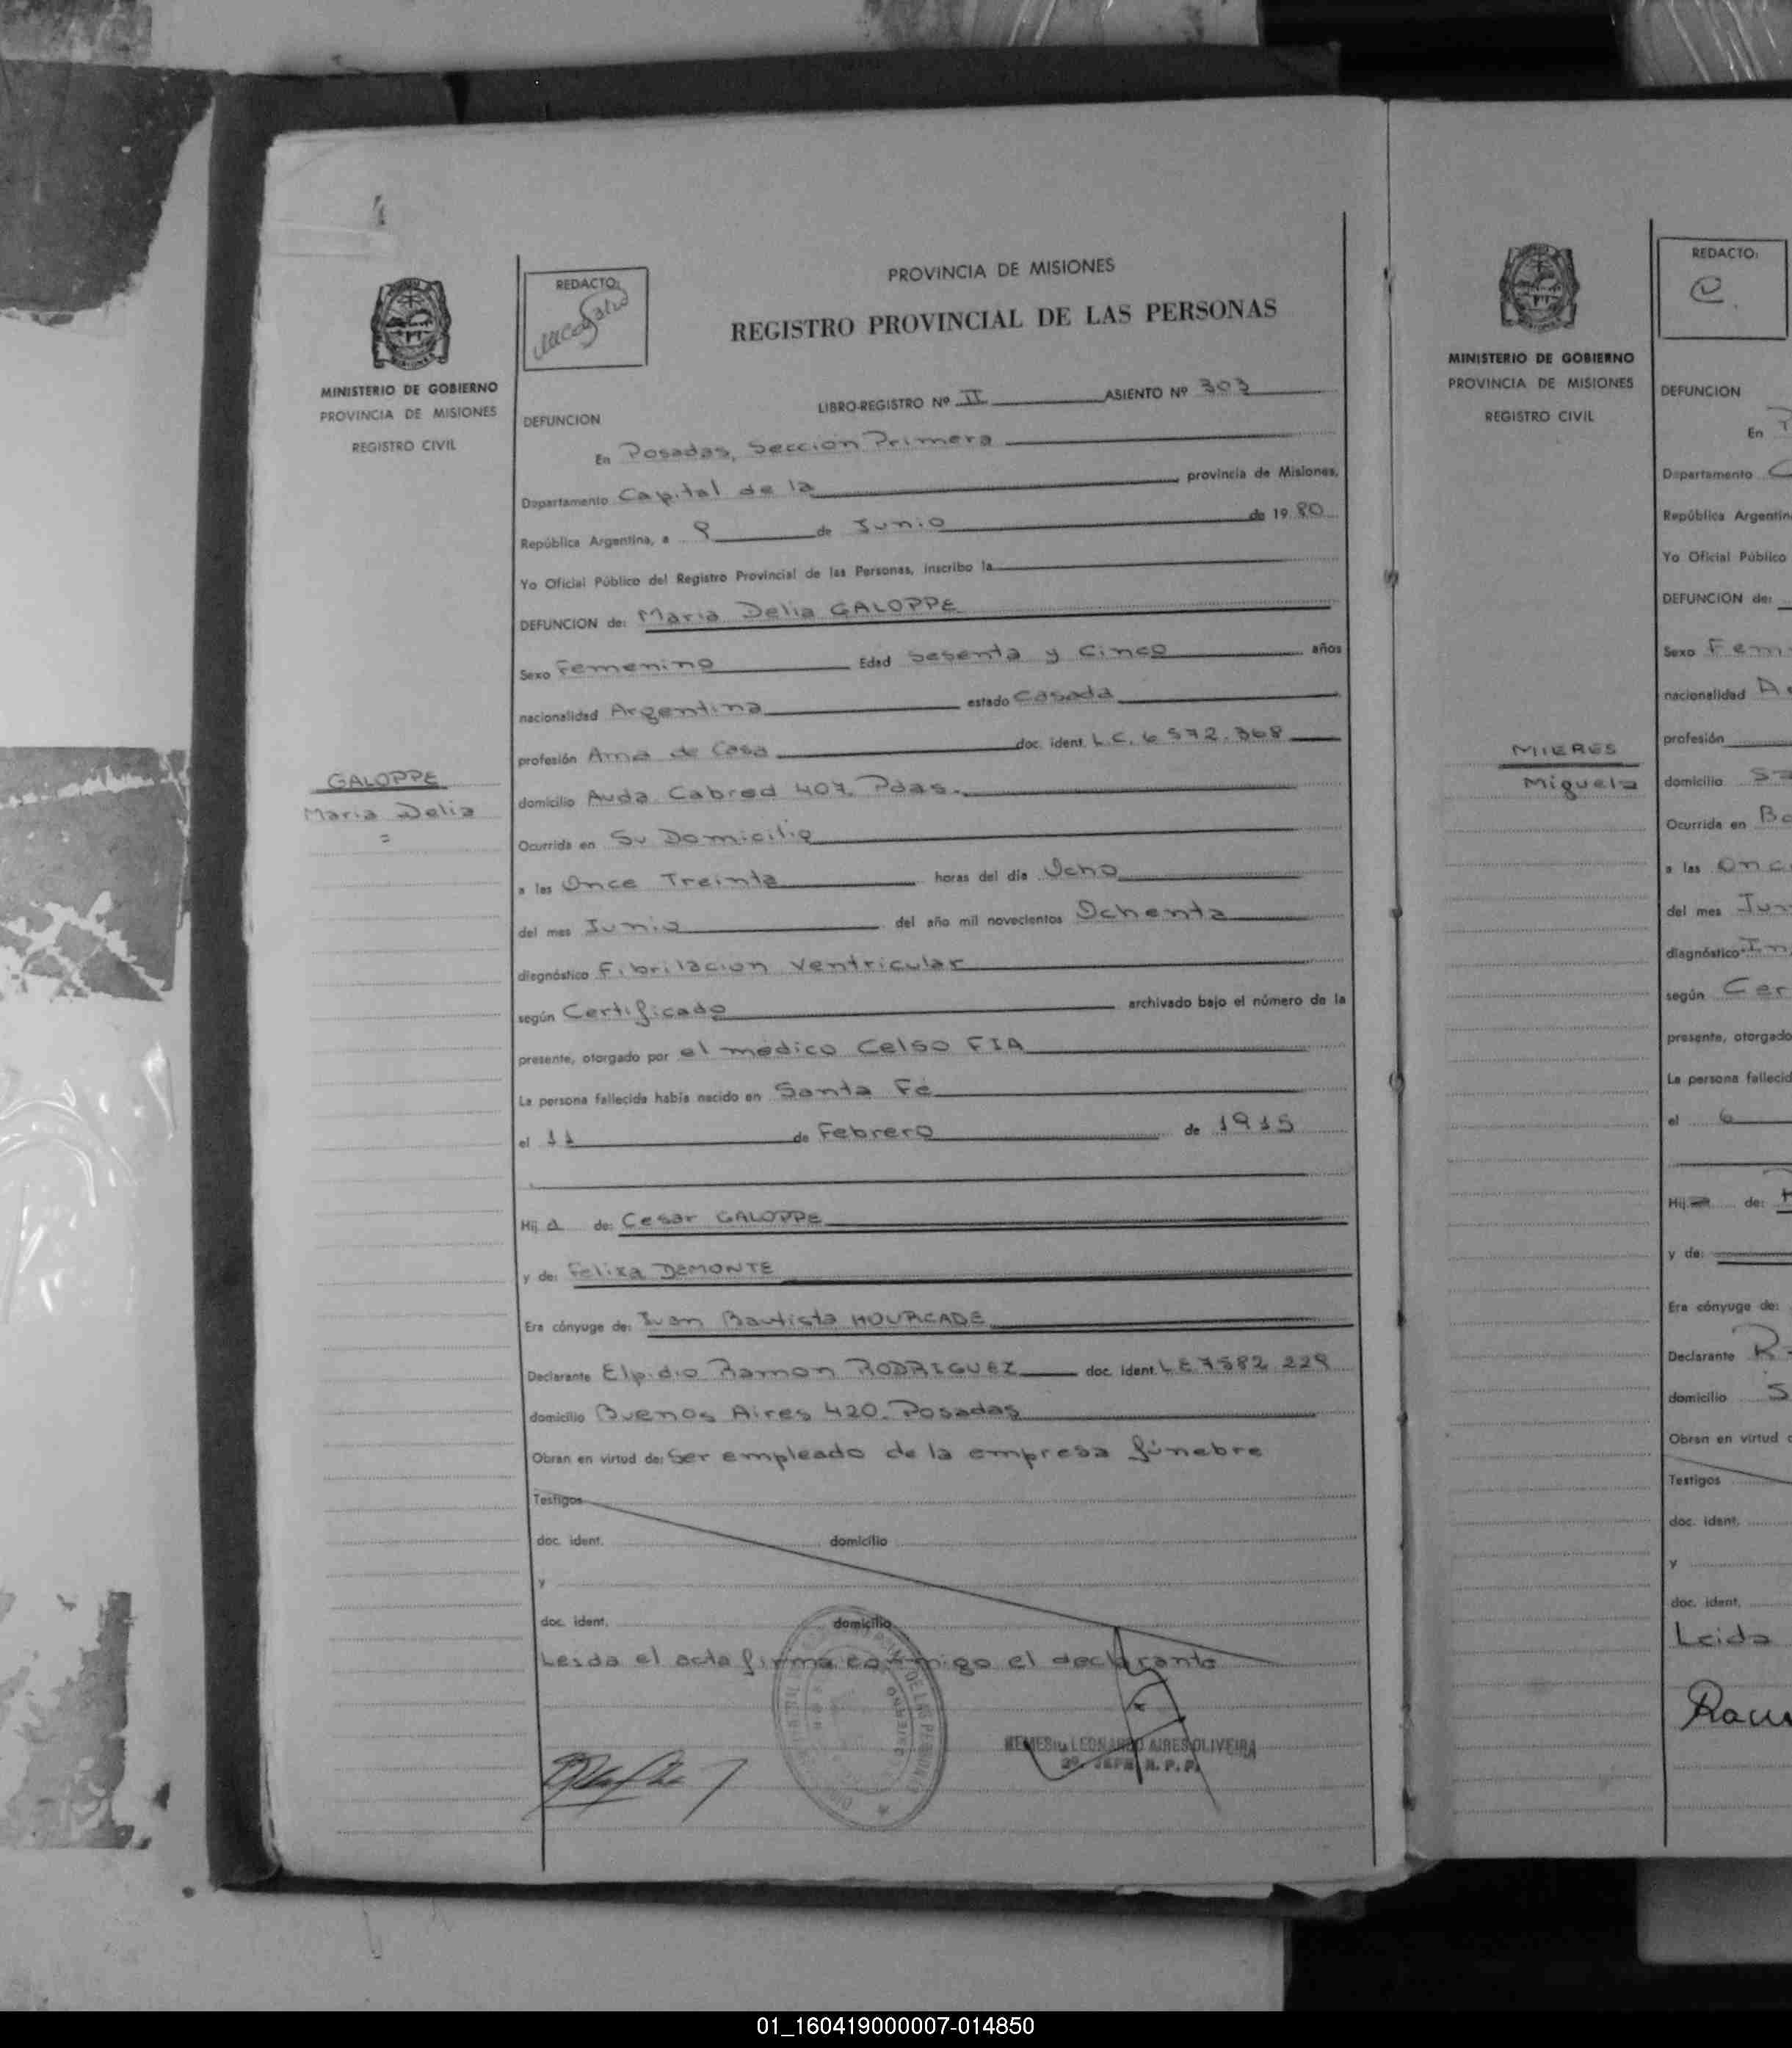 REDACTO:
MINISTERIO DE GOBIERNO
PROVINCIA DE MISIONES
REGISTRO CIVIL
PROVINCIA DE MISIONES
REGISTRO PROVINCIAL DE LAS PERSONAS
LIBRO-REGISTRO Nº II ASIENTO Nº 303
DEFUNCION
En Posadas, Sección Primera
Departamento Capital de la provincia de Misiones,
República Argentina, a 9 de Junio de 1980
Yo Oficial Público del Registro Provincial de las Personas, inscribo la
DEFUNCION de: Maria Delia GALOPPE
Sexo Femenino Edad Sesenta y Cinco años
nacionalidad Argentina estado Casada
profesión Ama de Casa doc. ident. L.C. 6 572.368
GALOPPE
Maria Delia
=
domicilio Avda Cabred 407. Pdas.
Ocurrida en Su Domicilio
a las Once Treinta horas del día Ocho
del mes Junio del año mil novecientos Ochenta
diagnóstico Fibrilacion Ventricular
según Certificado archivado bajo el número de la
presente, otorgado por el médico Celso FIA
La persona fallecida había nacido en Santa Fé
el 11 de Febrero de 1915
Hij a de: Cesar GALOPPE
y de: Felixa DEMONTE
Era cónyuge de: Juan Bautista HOURCADE
Declarante Elpidio Ramon RODRIGUEZ doc. ident. L E 7582 229
domicilio Buenos Aires 420. Posadas
Obran en virtud de: Ser empleado de la empresa fúnebre
Testigos
doc. ident. domicilio
y
doc. ident. domicilio
Leida el acta firma conmigo el declarante
NEMESIO LEONARDO AIRES OLIVEIRA
2º JEFE R. P. P.
REDACTO:
C.
MINISTERIO DE GOBIERNO
PROVINCIA DE MISIONES
REGISTRO CIVIL
DEFUNCION
En
Departamento C
República Argentin
Yo Oficial Público
DEFUNCION de:
Sexo Fem
nacionalidad A
profesión
MIERES
Miguela
domicilio
Ocurrida en
a las Onc
del mes Jun
diagnóstico In
según Cer
presente, otorgado
La persona fallecid
el 6
Hij de:
y de:
Era cónyuge de:
Declarante R
domicilio S
Obran en virtud
Testigos
doc. ident.
y
doc. ident.
Leida
01_160419000007-014850